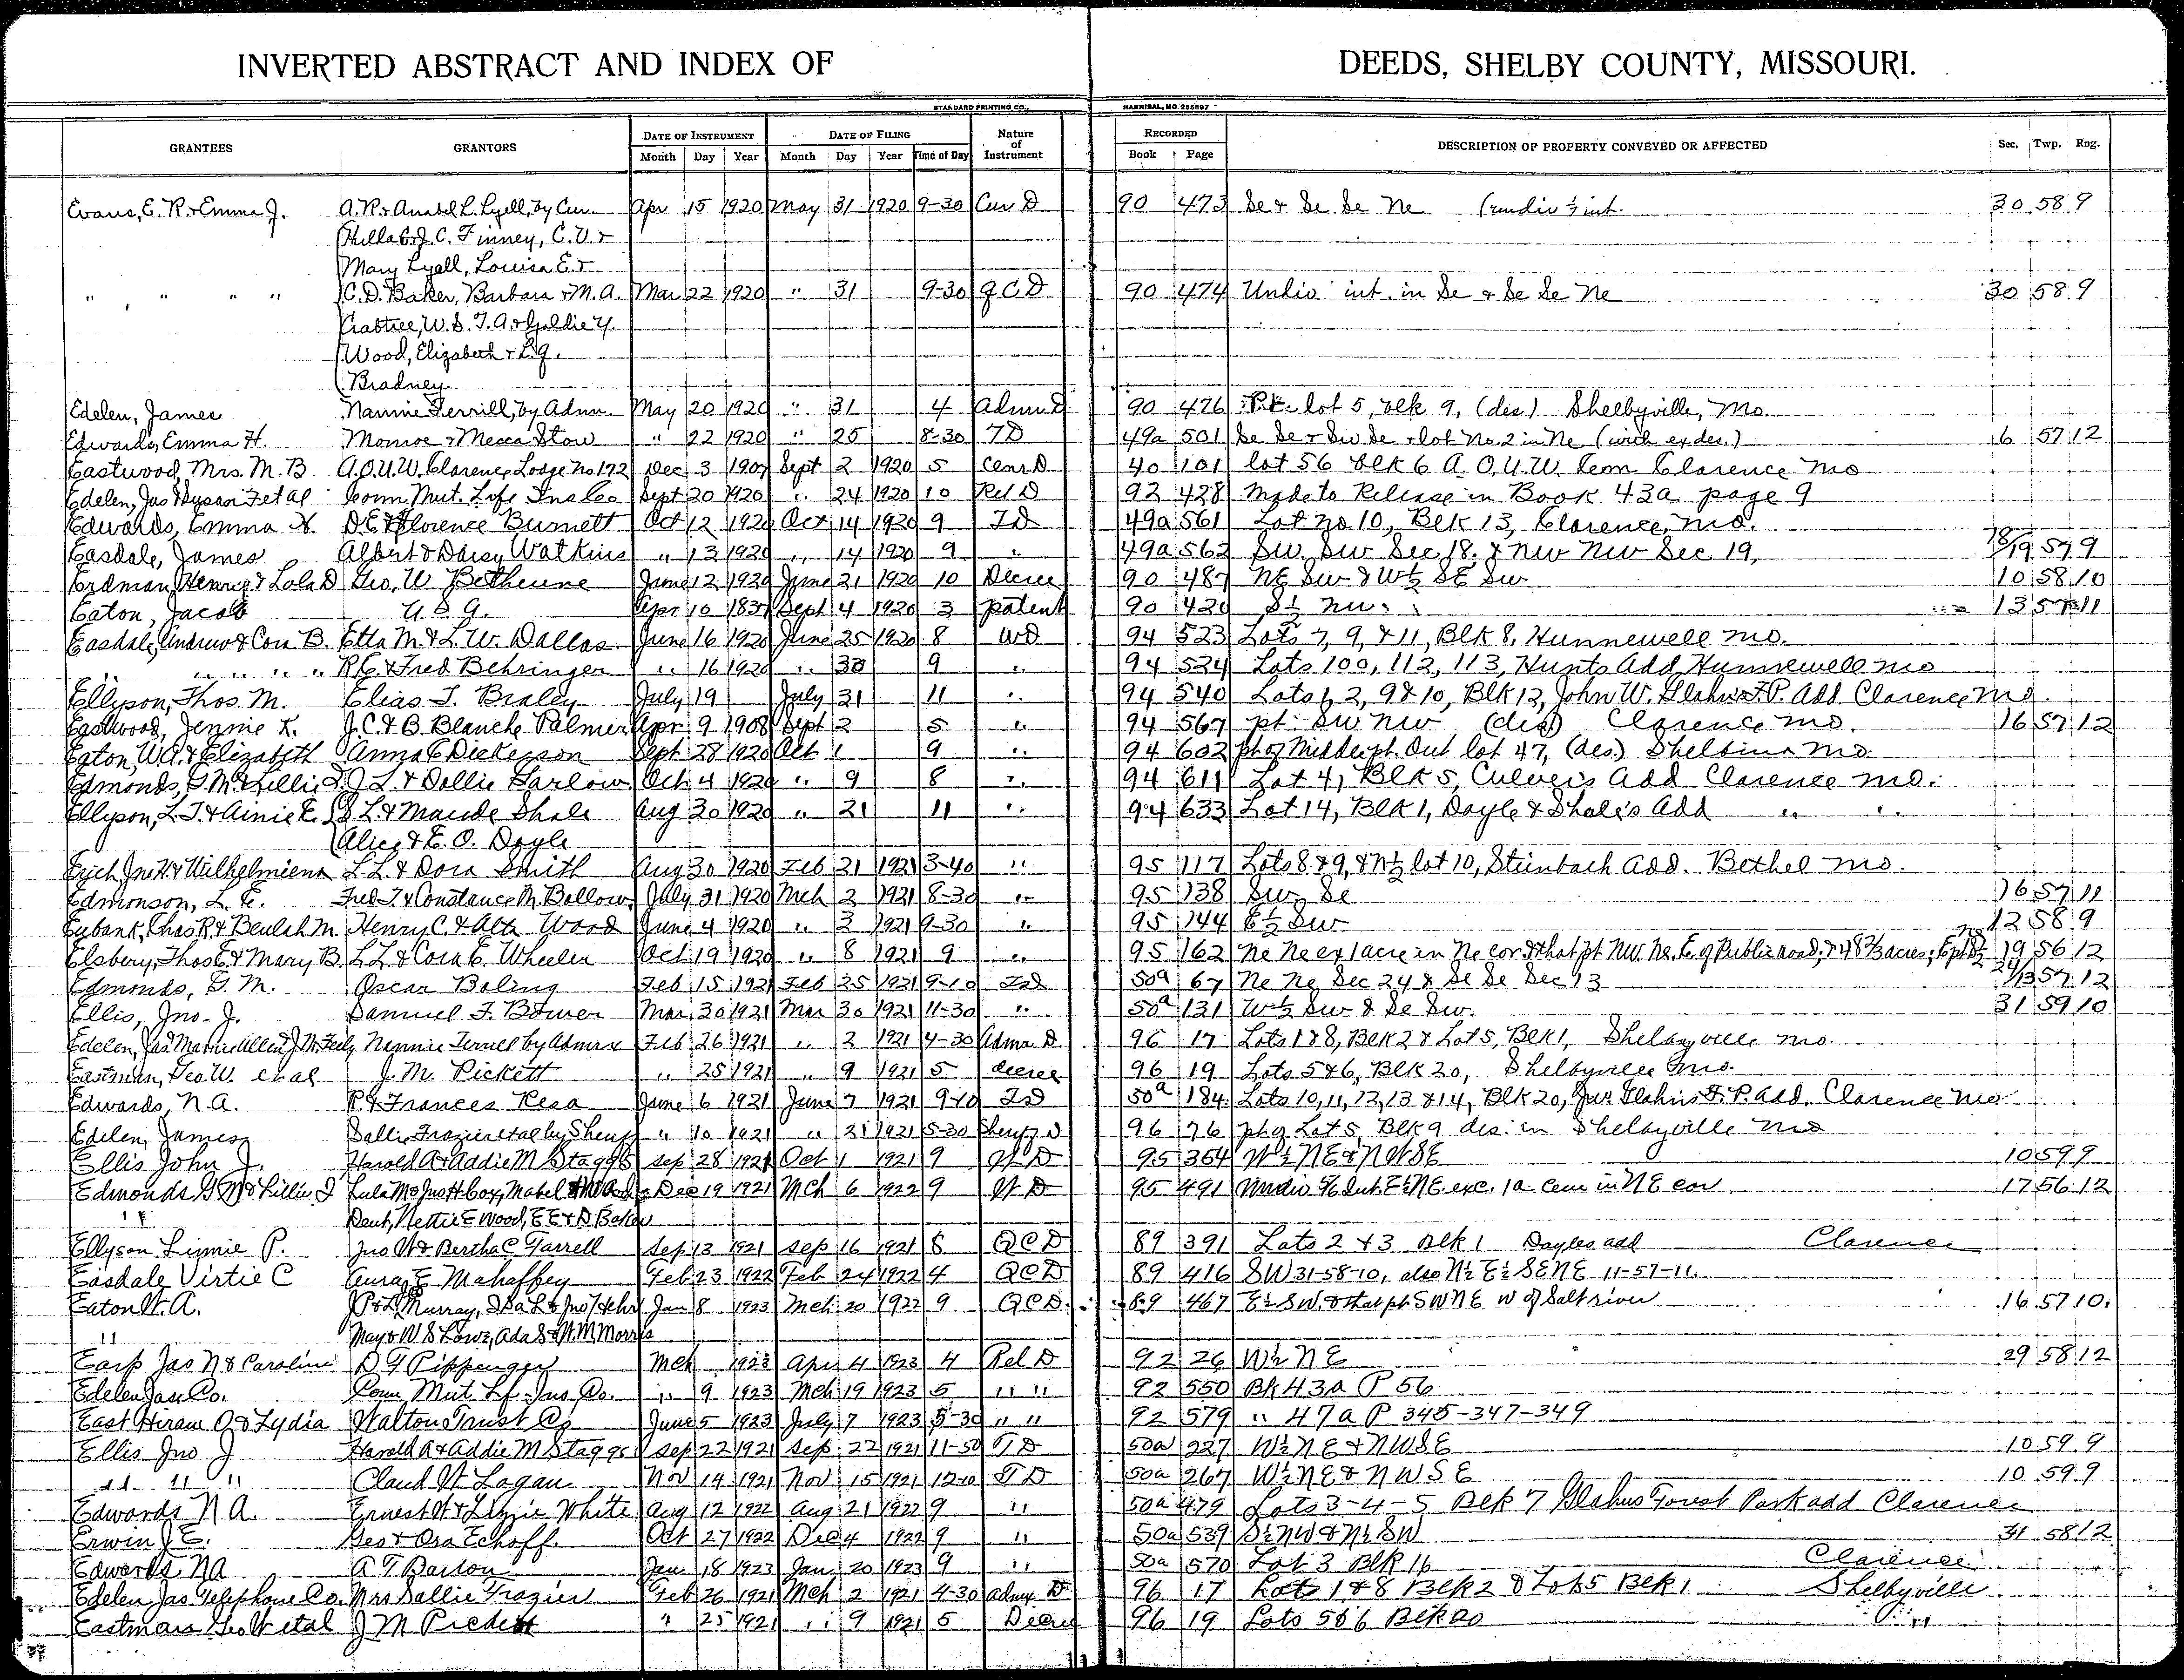 INVERTED ABSTRACT AND INDEX OF DEEDS, SHELBY COUNTY, MISSOURI.
STANDARD PRINTING CO., HANNIBAL, MO. 255897
GRANTEES GRANTORS DATE OF INSTRUMENT DATE OF FILING Nature of Instrument RECORDED DESCRIPTION OF PROPERTY CONVEYED OR AFFECTED Sec. Twp. Rng.
Month Day Year Month Day Year Time of Day Book Page
Evans, E. R. & Emma J. A. R. & Anabel L. Lyell, by Cur. Apr 15 1920 May 31 1920 9-30 Cur D 90 473 Se & Se Se Ne (undiv 1/2 int. 30 58 9
J. C. Finney, C. V. &
Mary Lyell, Louisa E. &
" " " " C. D. Baker, Barbara & M. A. Mar 22 1920 " 31 9-30 Q C D 90 474 Undiv int. in Se & Se Se Ne 30 58 9
Crabtree, W. S. T. A. & Goldie Y.
Wood, Elizabeth & L. G.
Bradney.
Edelen, James Nannie Terrill, by Adm. May 20 1920 " 31 4 Adm D 90 476 Pt. lot 5, blk 9, (des) Shelbyville, Mo.
Edwards, Emma H. Monroe & Mecca Stow " 22 1920 " 25 8-30 T D 49a 501 Se Se & Sw Se & lot No. 2 in Ne (with ex des.) 6 57 12
Eastwood, Mrs. M. B A. O. U. W. Clarence Lodge No. 172 Dec 3 1907 Sept 2 1920 5 Cem D 40 101 lot 56 blk 6 A. O. U. W. Cem Clarence Mo
Edelen, Jas & Dysart F et al Conn Mut. Life Ins Co Sept 20 1920 " 24 1920 10 Rel D 92 428 Made to Release in Book 43a page 9
Edwards, Emma H. D. E. & Florence Burnett Oct 12 1920 Oct 14 1920 9 T D 49a 561 Lot no 10, Blk 13, Clarence, Mo.
Easdale, James Albert & Daisy Watkins " 13 1920 " 14 1920 9 " 49a 562 Sw. Sw Sec 18. & nw nw Sec 19, 18/19 57 9
Erdman, Henry & Lola D Geo. W. Bethune June 12 1920 June 21 1920 10 Decree 90 487 NE Sw & W1/2 SE Sw 10 58 10
Eaton, Jacob U. S. A. Apr 10 1837 Sept 4 1920 3 patent 90 420 S1/2 nw 13 57 11
Easdale, Andrew & Cora B. Etta M. & L. W. Dallas June 16 1920 June 25 1920 8 WD 94 523 Lots 7, 9, & 11, Blk 8, Hunnewell Mo.
" " " " R. C. & Fred Behringer " 16 1920 " 30 9 " 94 524 Lots 100, 112, 113, Hunts Add Hunnewell Mo
Ellyson, Thos. M. Elias T. Braley July 19 July 31 11 " 94 540 Lots 1, 2, 9 & 10, Blk 12, John W. Glahn's F. P. Add Clarence Mo.
Eastwood, Jennie K. J. C. & B. Blanche Palmer Apr 9 1908 Sept 2 5 " 94 567 pt. Sw nw (des) Clarence Mo. 16 57 12
Eaton, W. A. & Elizabeth Anna C Dickerson Sept 28 1920 Oct 1 9 " 94 602 pt of Middle pt. Out lot 47, (des.) Shelbina Mo.
Edmonds, G. M. & Lillie J. J. L. & Dollie Farlow Oct 4 1920 " 9 8 " 94 611 Lot 4, Blk 5, Culver's Add Clarence Mo.
Ellyson, L. T. & Ainie E. S. L. & Maude Shale Aug 30 1920 " 21 11 " 94 633 Lot 14, Blk 1, Doyle & Shale's Add " "
Alice & E. O. Doyle
Erich, Jno H. & Wilhelmiena L. L. & Dora Smith Aug 30 1920 Feb 21 1921 3-40 " 95 117 Lots 8 & 9, & N1/2 lot 10, Steinbach Add. Bethel Mo.
Edmonson, L. E. Fred T. & Constance M. Bollow July 31 1920 Mch 2 1921 8-30 " 95 138 Sw Se 16 57 11
Eubank, Chas R. & Beulah M Henry C. & Alta Wood June 4 1920 " 3 1921 9-30 " 95 144 E1/2 Sw 12 58 9
Elsbery, Thos E. & Mary B. L. L. & Cora E. Wheeler Oct 19 1920 " 8 1921 9 " 95 162 Ne Ne ex 1 acre in Ne cor & that pt NW. Ne. E. of Public road, & 48 2/3 acres, E pt 19 56 12
Edmonds, G. M. Oscar Boling Feb 15 1921 Feb 25 1921 9-10 T D 50a 67 Ne Ne Sec 24 & Se Se Sec 13 24/13 57 12
Ellis, Jno. J. Samuel F. Bower Mar 30 1921 Mar 30 1921 11-30 " 50a 131 W1/2 Sw & Se Sw. 31 59 10
Edelen, Jas Nannie Terrill by Admr Feb 26 1921 " 2 1921 4-30 Adm D 96 17 Lots 1 & 8, Blk 2 & Lot 5, Blk 1, Shelbyville Mo.
Eastman, Geo. W. et al J. M. Pickett " 25 1921 " 9 1921 5 decree 96 19 Lots 5 & 6, Blk 20, Shelbyville Mo.
Edwards, N. A. R. & Frances Resa June 6 1921 June 7 1921 9-10 T D 50a 184 Lots 10, 11, 12, 13 & 14, Blk 20, Jno Glahn's F. P. Add. Clarence Mo
Edelen, James Sallie Frazier et al by Sheriff " 10 1921 " 21 1921 5-30 Sheriff D 96 76 pt of Lot 5 Blk 9 des. in Shelbyville Mo
Ellis John J. Harold A & Addie M Staggs Sep 28 1921 Oct 1 1921 9 W D 95 364 W1/2 NE & NW SE 10 59 9
Edmonds G M & Lillie J Lula M & Jno H Cox, Mabel & W A Dec 19 1921 Mch 6 1922 9 W D 95 491 Undiv 5/6 Int. E1/2 NE exc. 1 a Cem in NE cor 17 56 12
" Dent, Nettie E Wood, E E & D Baker
Ellyson Linnie P. Jno W & Bertha C Garrell Sep 13 1921 Sep 16 1921 8 Q C D 89 391 Lots 2 & 3 Blk 1 Dayles add Clarence
Easdale Virtie C Aura E Mahaffey Feb 23 1922 Feb 24 1922 4 Q C D 89 416 SW 31-58-10, also N1/2 E1/2 SE NE 11-57-11.
Eaton W. A. J P & L Murray, Jan 8 1923 Mch 20 1922 9 Q C D. 89 467 E1/2 SW. & that pt. SW NE W of Salt river 16 57 10.
" May & W S Lowe, Ada S & W. M Morris
Earp Jas N & Caroline D G Pippenger Mch 1923 Apr 4 1923 4 Rel D 92 26 W1/2 NE 29 58 12
Edelen Jas Co. Conn Mut. Lf. Ins Co. " 9 1923 Mch 19 1923 5 " " 92 550 Bk 43a P 56
East Hiram O & Lydia Walton Trust Co June 5 1923 July 7 1923 8-30 " " 92 579 " 47a P 345-347-349
Ellis Jno J Harold A & Addie M Staggs Sep 22 1921 Sep 22 1921 11-50 T D 50a 227 W1/2 NE & NW SE 10 59 9
" " " Claud W Logan Nov 14 1921 Nov 15 1921 12-10 T D 50a 267 W1/2 NE & NW SE 10 59 9
Edwards N A. Ernest W & Lizzie White Aug 12 1922 Aug 21 1922 9 " 50a 479 Lots 3-4-5 Blk 7 Glahns Forest Park add Clarence
Erwin J E. Geo & Ora Echoff Oct 27 1922 Dec 4 1922 9 " 50a 539 S1/2 NW & N1/2 SW 31 58 12
Edwards NA A T Barton Jan 18 1923 Jan 20 1923 9 " 50a 570 Lot 3 Blk 16 Clarence
Edelen Jas Telephone Co. Mrs Sallie Frazier Feb 26 1921 Mch 2 1921 4-30 Admx D 96 17 Lots 1 & 8 Blk 2 & Lot 5 Blk 1 Shelbyville
Eastman Geo W et al J M Pickett " 25 1921 " 9 1921 5 Decree 96 19 Lots 5 & 6 Blk 20 "